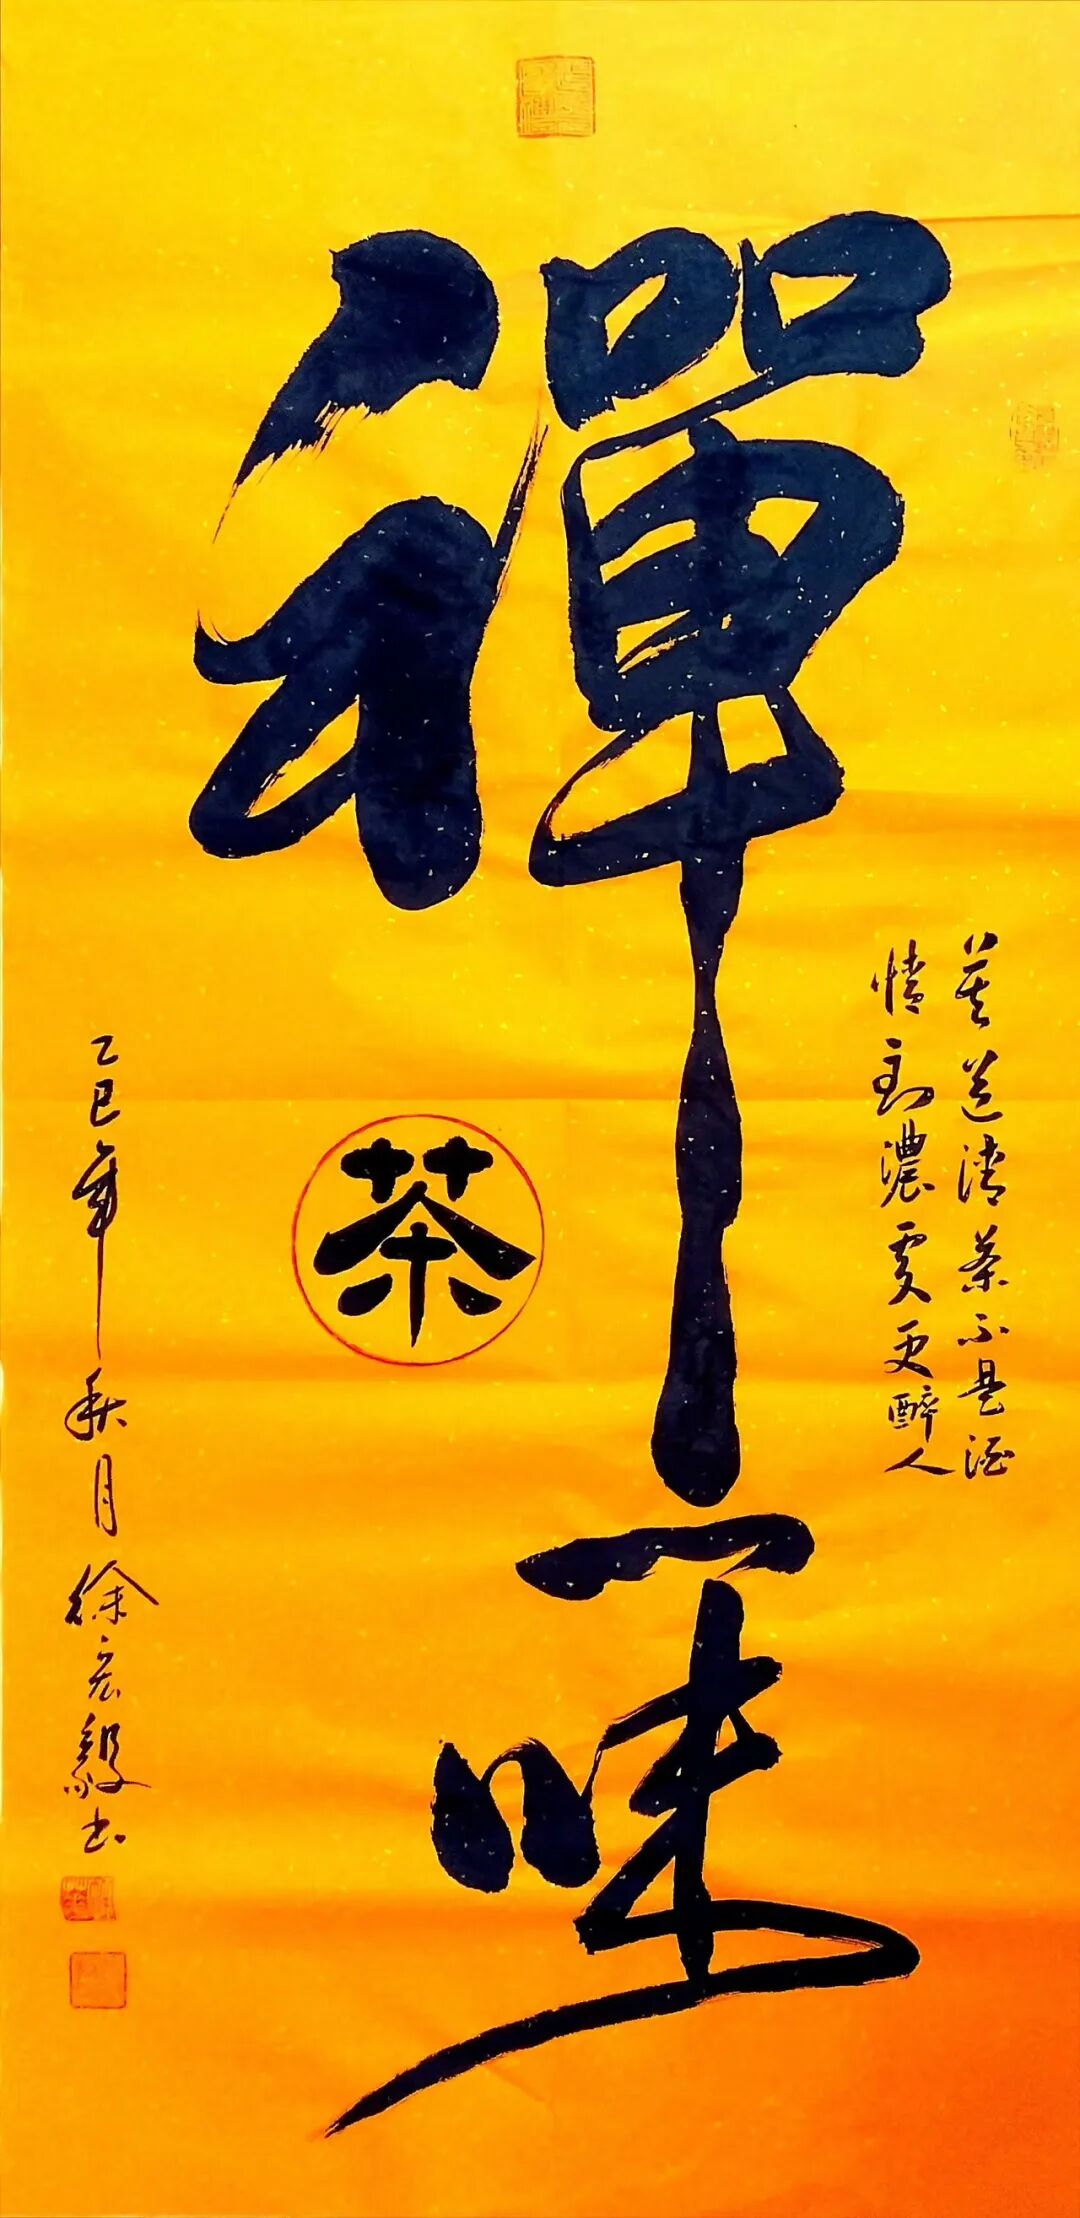 莫道清茶不是酒
情到濃處更醉人
禪
茶
一味
乙巳年秋月徐宏毅书